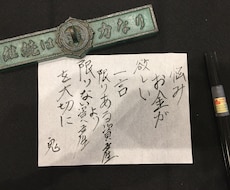 継続は力なり
悩み
お金が
欲しい
一言
限りある資産
より
限りない資産
を大切に